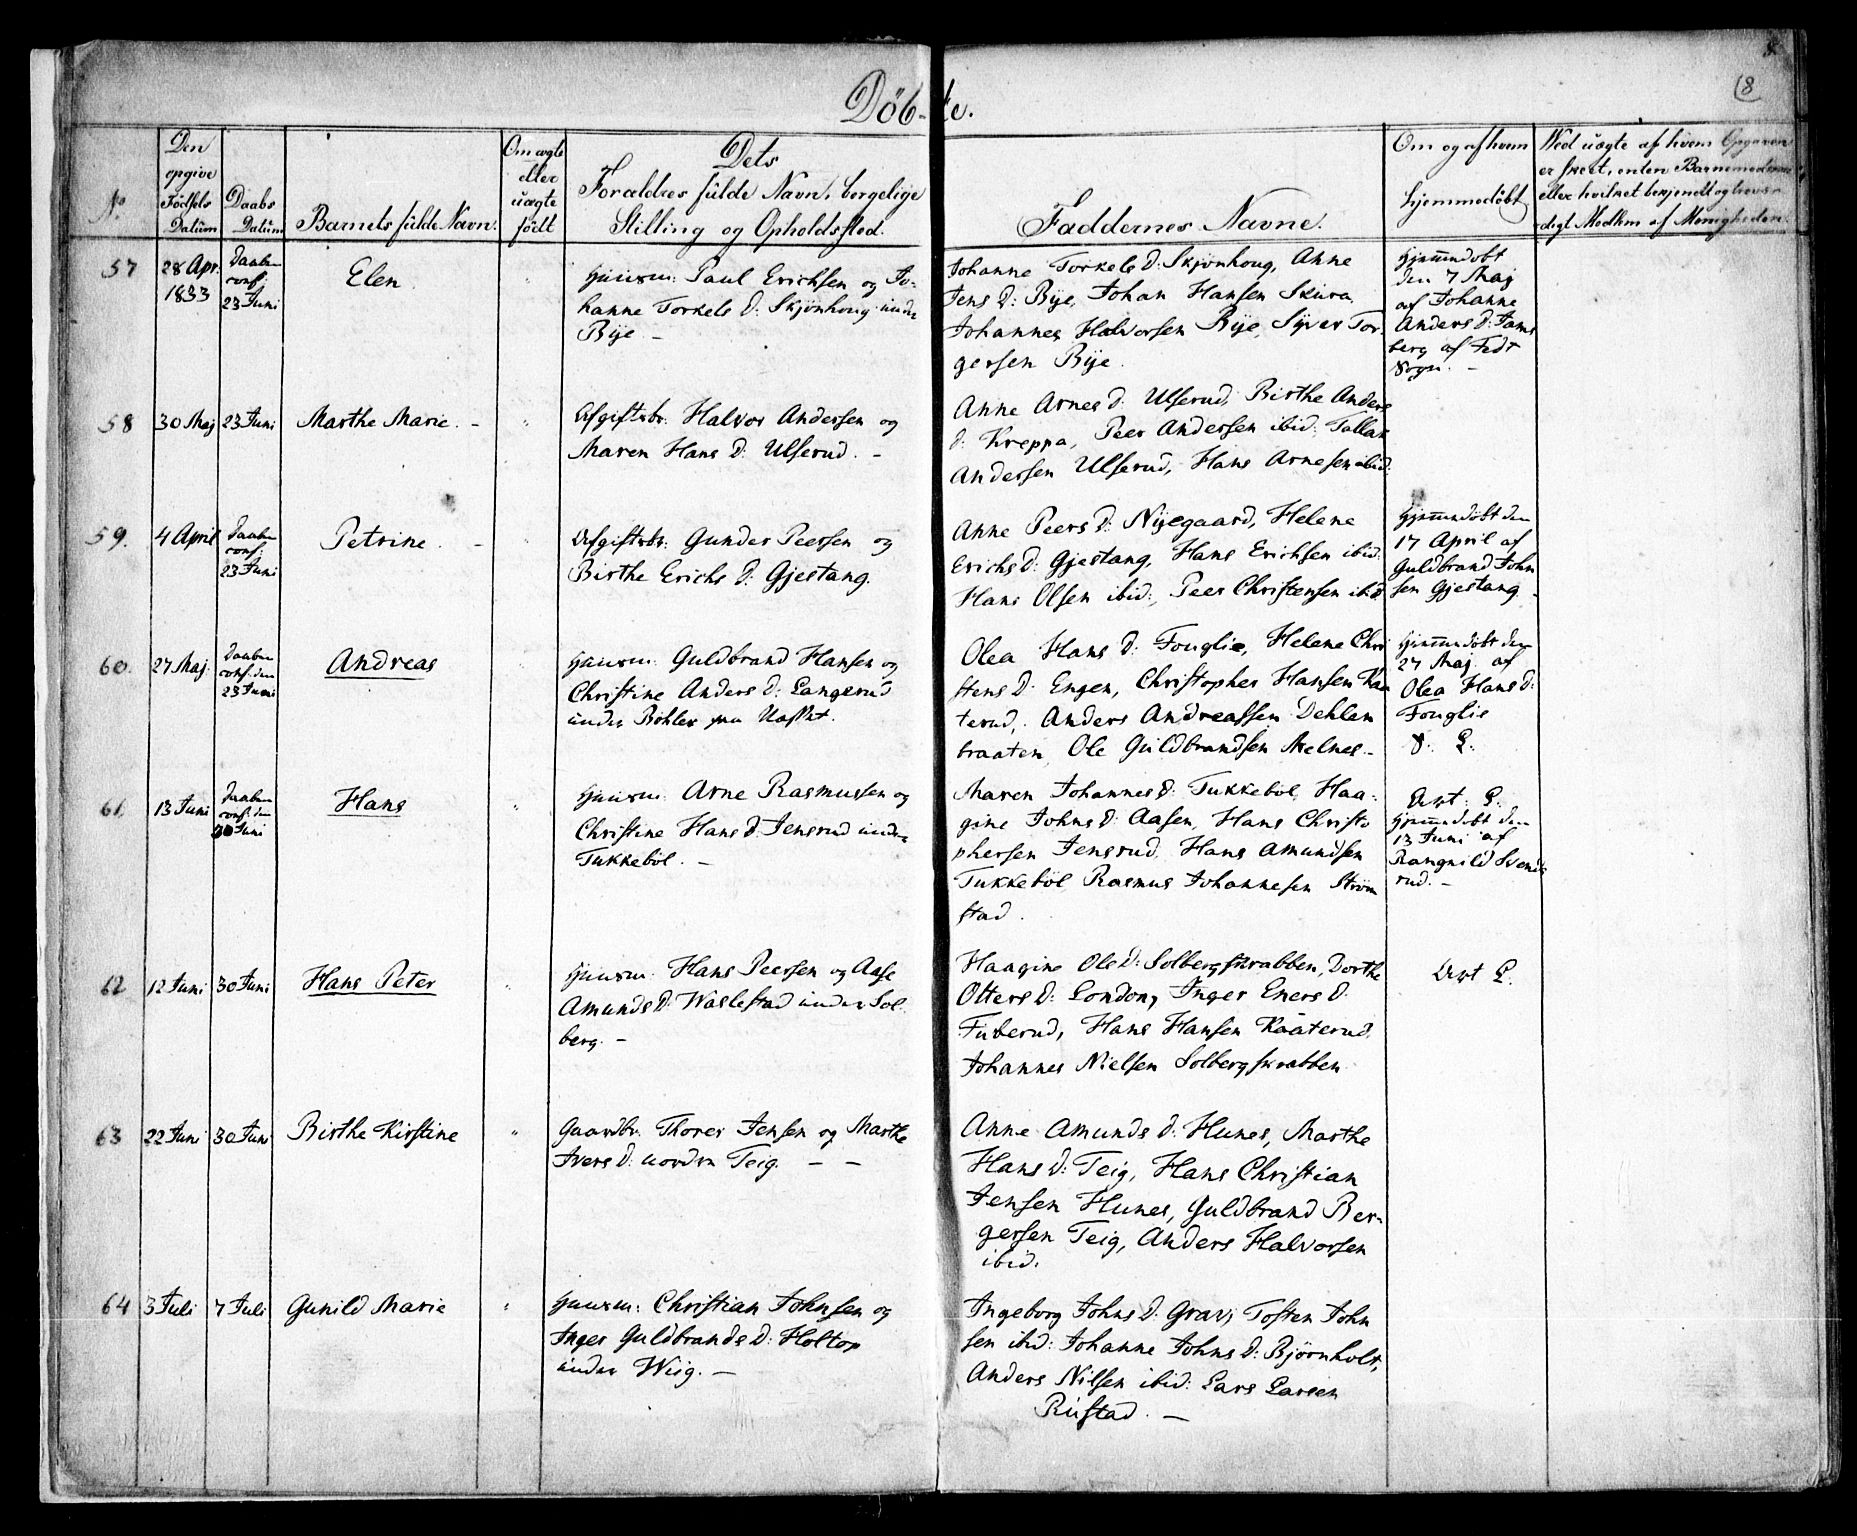 8
8
Döb-te.
No
Den
opgivne
Födsels
Datüm
Daabs
Datüm
Barnets fülde Navn.
Om ægte
eller
üægte
födt
Dets
Forældres fülde Navn, borgelige
Stilling og Opholdssted.
Faddernes Navne.
Om og af hvem
hjemmedöbt
Ved üægte af hvem Opgaven
er skeet, enten Barnemoderen
eller hvilket bekjendt og trovær-
digt Medlem af Menigheden.
57
28 Apr.
1833
Daaben
conf.
23 Juni
Elen
"
Huusm: Paul Erichsen og Jo-
hanne Torkels D: Skjönhoug under
Bye. -
Johanne Torkels D: Skjönhoug, Anne
Jens D: Bye, Johan Hansen Skura,
Johannes Halvorsen Bye, Syver Tor-
gersen Bye.
Hjemmedöbt
den 7 Maj
af Johanne
Anders D: Jams
berg af Fedt
Sogn. -
58
30 Maj
23 Juni
Marthe Marie. -
"
Afgiftsbr: Halvor Andersen og
Maren Hans D: Ulserud. -
Anne Arnes D: Ulserud, Birthe Anders
D: Kreppa, Peer Andersen ibid: Tallak
Andersen Ulserud, Hans Arnesen ibid.
59.
4 April
Daaben
conf:
23 Juni
Petrine. -
"
Afgiftsbr: Gunder Peersen og
Birthe Erichs D: Gjestang.
Anne Peers D: Nyegaard, Helene
Erichs D: Gjestang, Hans Erichsen ibid:
Hans Olsen ibid:, Peer Christensen ibid
Hjemmedöbt den
17 April af
Guldbrand John
sen Gjestang -
60.
27 Maj.
Daaben
conf: den
23 Juni
Andreas
"
Huusm: Guldbrand Hansen og
Christine Anders D: Langerud
under Böhler
Olea Hans D: Fouglie, Helene Chri
stens D: Engen, Christopher Hansen Kaa
terud, Anders Andreassen Dehlem
braaten, Ole Guldbrandsen Melnes.-
Hjemmedöbt den
27 Maj af
Olea Hans D:
Fouglie
S. L.
61.
13 Juni
Daaben
conf: den
30 Juni
Hans
"
Huusm: Arne Rasmussen og
Christine Hans D: Jensrud under
Tukkeböl. -
Maren Johannes D: Tukkeböl, Haa-
gine Johns D: Aasen, Hans Christo
phersen Jensrud, Hans Amundsen
Tukkeböl Rasmus Johannesen Ström
stad.
L.
Hjemmedöbt den
13 Juni af
Rangnild Svends
rud. -
62
12 Juni
30 Juni
Hans Peter
"
Huusm: Hans Peersen og Aase
Amunds D: Waslestad under Sol
berg. -
Haagine Ole D: Solbergskrabben, Dorthe
Otters D: London, Inger Eners D:
Fuberud, Hans Hansen Kaaterud,
Johannes Nielsen Solbergskrabben
L.
63
22 Juni
30 Juni
Birthe Kirstine
"
Gaardbr: Thorer Jensen og Marthe
Ivers D: nordre Teig. - -
Anne Amunds D: Hunes, Marthe
Hans D: Teig, Hans Christian
Jensen Hunes, Guldbrand Ber-
gersen Teig, Anders Halvorsen
ibid.
64
3 Juli
7 Juli
Gunild Marie
"
Huusm: Christian Johnsen og
Inger Guldbrands D: Holtop
under Wiig. -
Ingeborg Johns D: Grav, Tosten John
sen ibid: Johanne Johns D: Björnholt,
Anders Nilsen ibid: Lars Larsen
Rustad. -